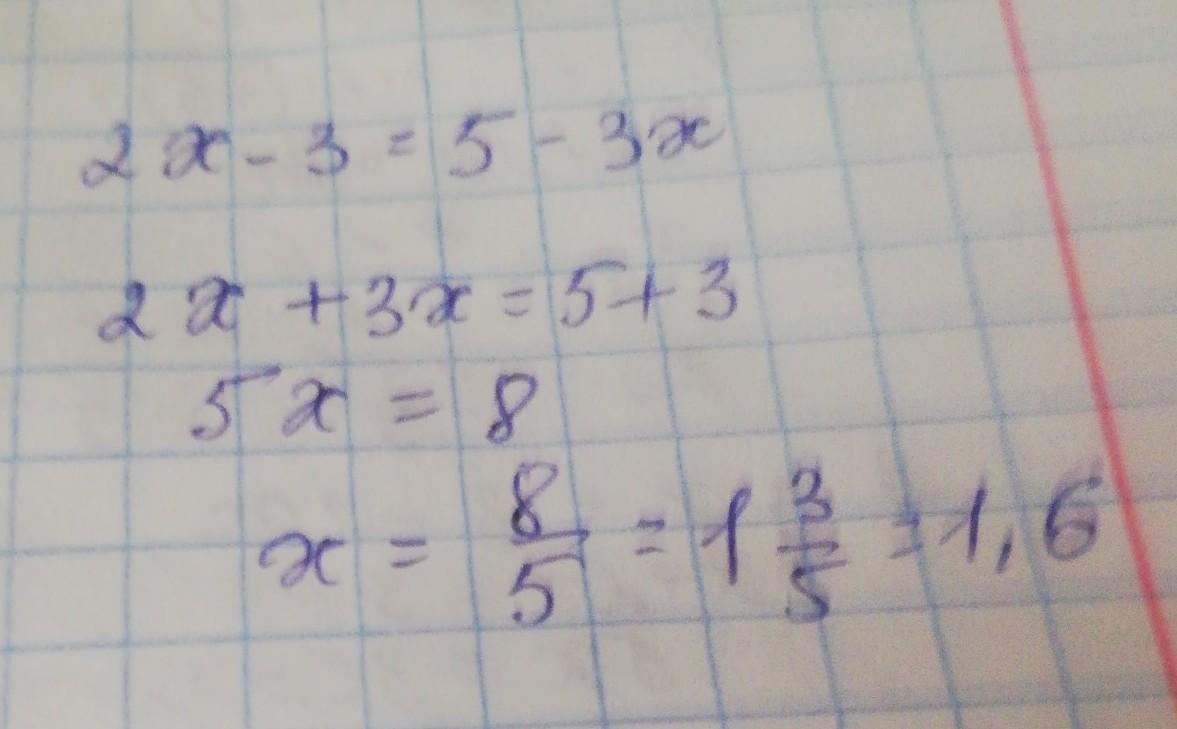 2x - 3 = 5 - 3x
2x + 3x = 5 + 3
5x = 8
x = 8/5 = 1 3/5 = 1,6